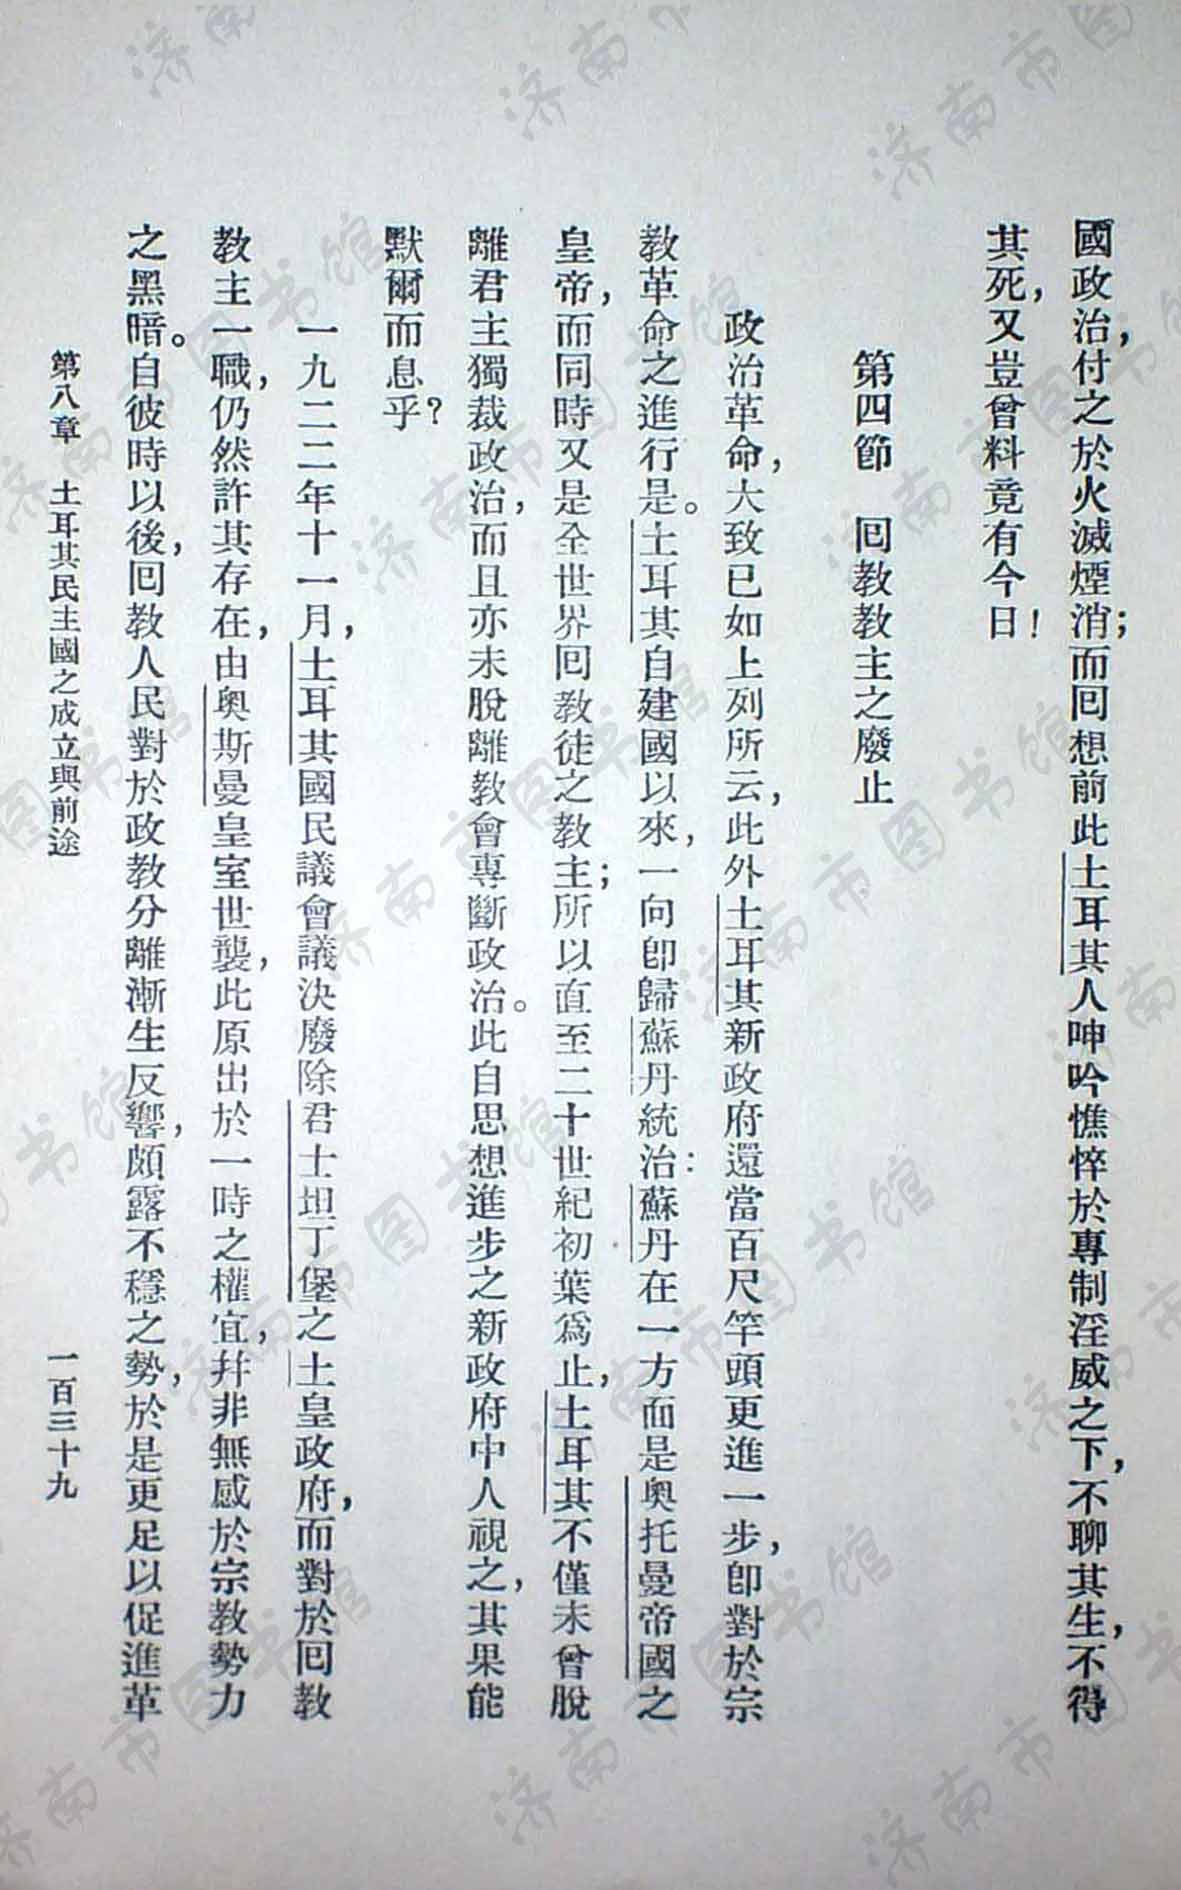 國政治，付之於火滅煙消；而回想前此土耳其人呻吟憔悴於專制淫威之下，不聊其生，不得
其死，又豈曾料竟有今日！
第四節　回教教主之廢止
政治革命，大致已如上列所云，此外土耳其新政府還當百尺竿頭更進一步，卽對於宗
教革命之進行是。土耳其自建國以來，一向卽歸蘇丹統治：蘇丹在一方面是奧托曼帝國之
皇帝，而同時又是全世界回教徒之教主；所以直至二十世紀初葉爲止，土耳其不僅未曾脫
離君主獨裁政治，而且亦未脫離教會專斷政治。此自思想進步之新政府中人視之，其果能
默爾而息乎？
一九二二年十一月，土耳其國民議會議決廢除君士坦丁堡之土皇政府，而對於回教
教主一職，仍然許其存在，由奧斯曼皇室世襲，此原出於一時之權宜，幷非無感於宗教勢力
之黑暗。自彼時以後，回教人民對於政教分離漸生反響，頗露不穩之勢，於是更足以促進革
第八章　土耳其民主國之成立與前途
一百三十九
济南市图书馆